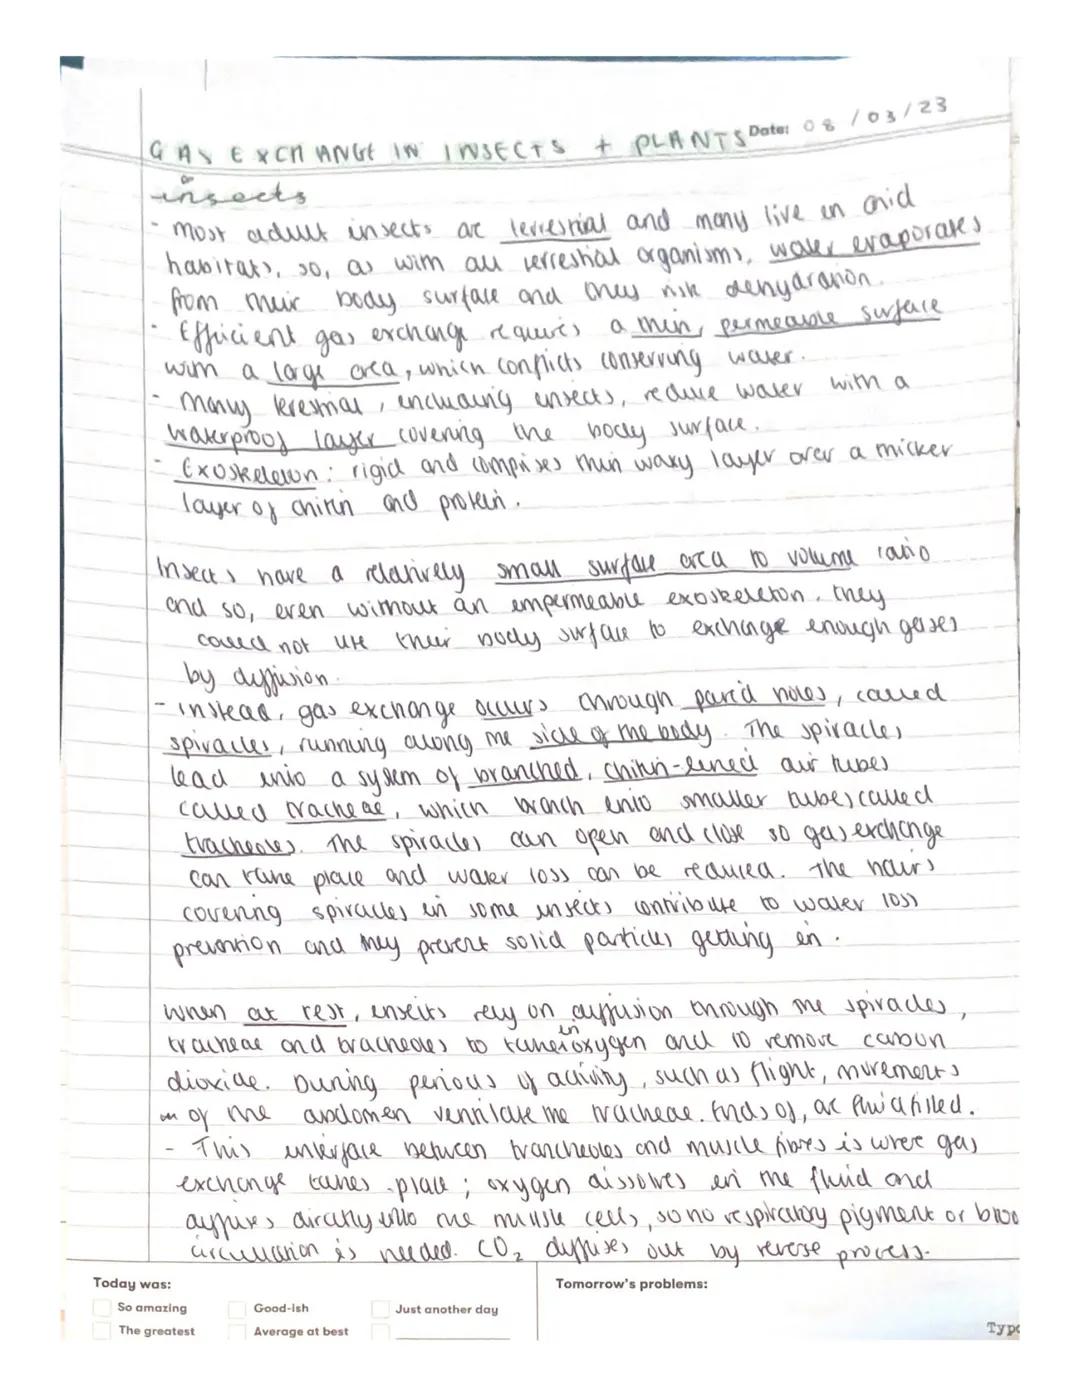 GAS EXCHANGE IN INSECTS + PLANTS Date: 08/03/23
insects
- Most adult insects are terrestrial and many live in arid
habitats, so, as with all terrestrial organisms, water evaporates
from their body surface and they risk dehydration.
- Efficient gas exchange requires a thin, permeable surface
with a large area, which conflicts conserving water.
- Many terestrial, including insects, reduce water with a
waterproof layer covering the body surface.
- Exoskeleton: rigid and comprises thin waxy layer over a thicker
layer of chitin and protein.
Insects have a relatively small surface area to volume ratio
and so, even without an impermeable exoskeleton, they
could not use their body surface to exchange enough gases
by diffusion.
- instead, gas exchange occurs through paired holes, called
spiracles, running along the side of the body. The spiracles
lead into a system of branched, chitin-lined air tubes
called tracheae, which branch into smaller tubes called
tracheoles. The spiracles can open and close so gas exchange
can take place and water loss can be reduced. The hairs
covering spiracles in some insects contribute to water loss
prevention and they prevent solid particles getting in.
When at rest, insects rely on diffusion through the spiracles,
tracheae and tracheoles to take in oxygen and to remove carbon
dioxide. During periods of activity, such as flight, movements
of the abdomen ventilate the tracheae. Ends of, are fluid filled.
- This interface between trancheoles and muscle fibres is where gas
exchange takes place; oxygen dissolves in the fluid and
diffuses directly into the muscle cells, so no respiratory pigment or bloo
circulation is needed. CO₂ diffuses out by reverse process.
Today was:
So amazing
Good-ish
Just another day
The greatest
Average at best
Tomorrow's problems:
Typo